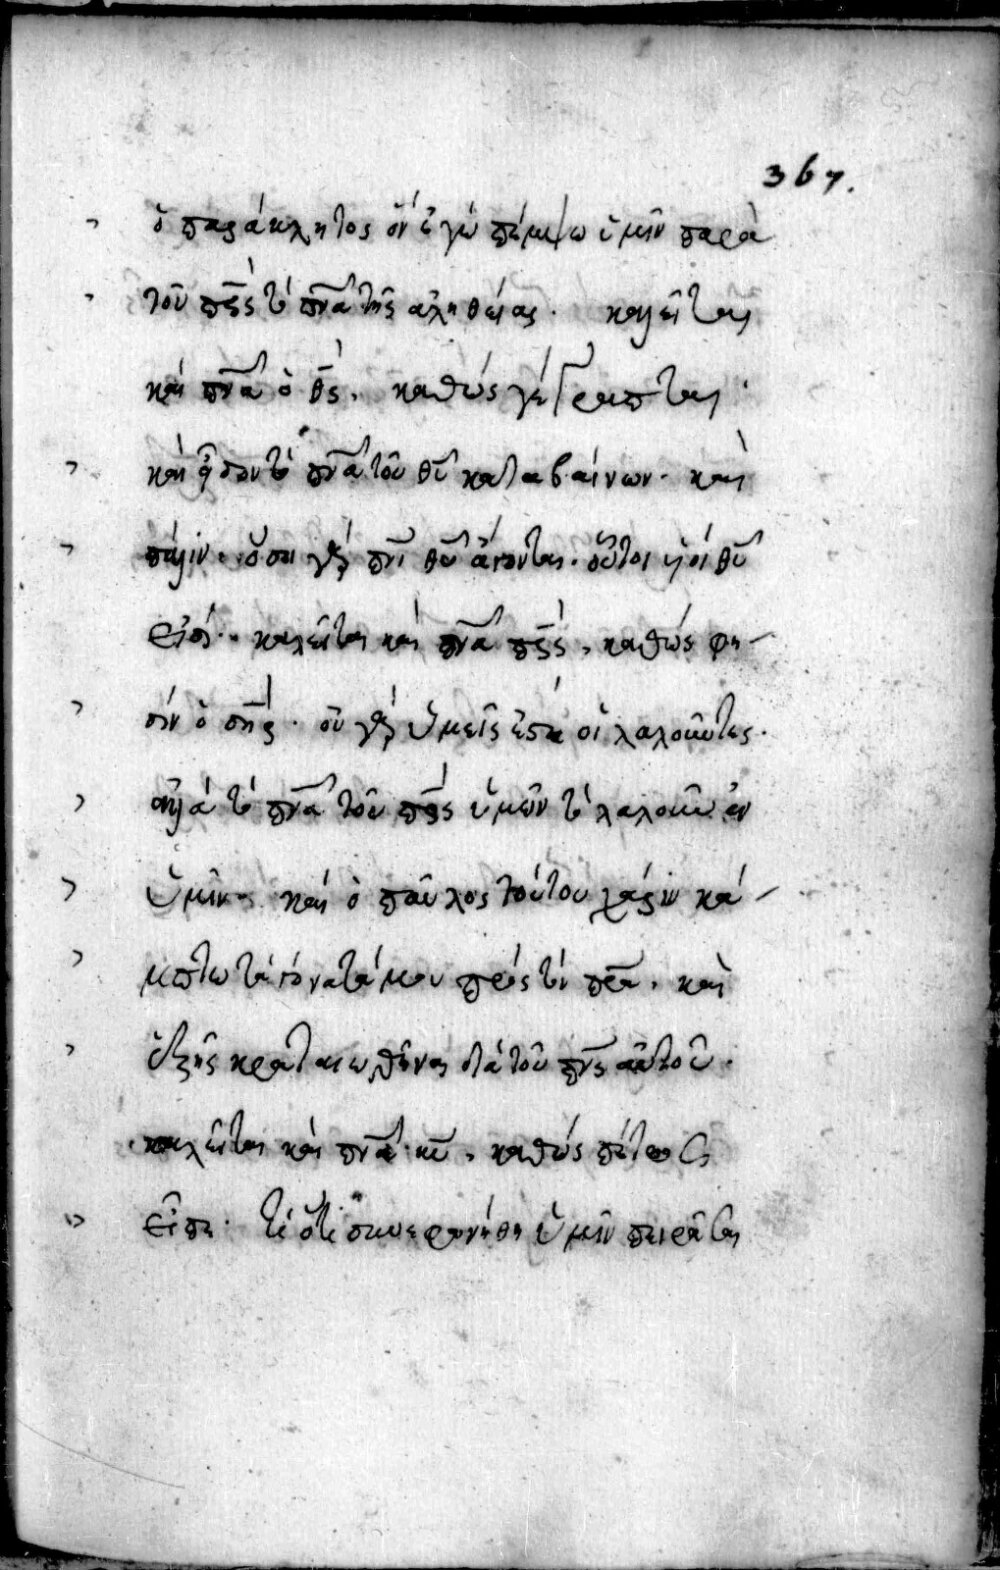 367.
ὁ παράκλητος ὃν ἐγὼ πέμψω ὑμῖν παρὰ
τοῦ πρς τὸ πνα τῆς ἀληθείας. καλεῖται
καὶ πνα ὁ θς. καθὼς γέγραπται.
καὶ εἶδον τὸ πνα τοῦ θυ καταβαίνων. καὶ
πάλιν. ὅσοι γὰρ πνι θυ ἄγονται. οὗτοι υἱοὶ θυ
εἰσί. καλεῖται καὶ πνα πρς, καθώς φη-
σιν ὁ σηρ. οὐ γὰρ ὑμεῖς ἐστε οἱ λαλοῦντες.
ἀλλὰ τὸ πνα τοῦ πρς ὑμῶν τὸ λαλοῦν ἐν
ὑμῖν. καὶ ὁ παῦλος τούτου χάριν κά-
μπτω τὰ γόνατά μου πρὸς τὸν πρα. καὶ
ἑξῆς κραταιωθῆναι διὰ τοῦ πνς αὐτοῦ.
καλεῖται καὶ πνα κυ, καθὼς πέτρος
εἶπε. τί ὅτι συνεφωνήθη ὑμῖν πειρᾶσαι